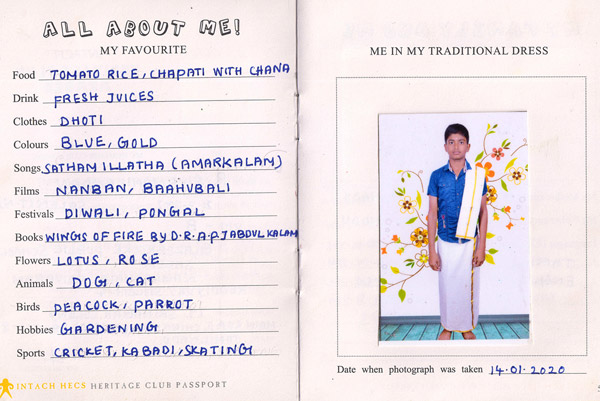 ALL ABOUT ME!
MY FAVOURITE
Food TOMATO RICE, CHAPATI WITH CHANA
Drink FRESH JUICES
Clothes DHOTI
Colours BLUE, GOLD
Songs SATHAM ILLATHA (AMARKALAM)
Films NANBAN, BAAHUBALI
Festivals DIWALI, PONGAL
Books WINGS OF FIRE By D.R.A.P.JABDUL KALAM
Flowers LOTUS, ROSE
Animals DOG, CAT
Birds PEACOCK, PARROT
Hobbies GARDENING
Sports CRICKET, KABADI, SKATING
INTACH HECS HERITAGE CLUB PASSPORT
ME IN MY TRADITIONAL DRESS
Date when photograph was taken 14.01.2020